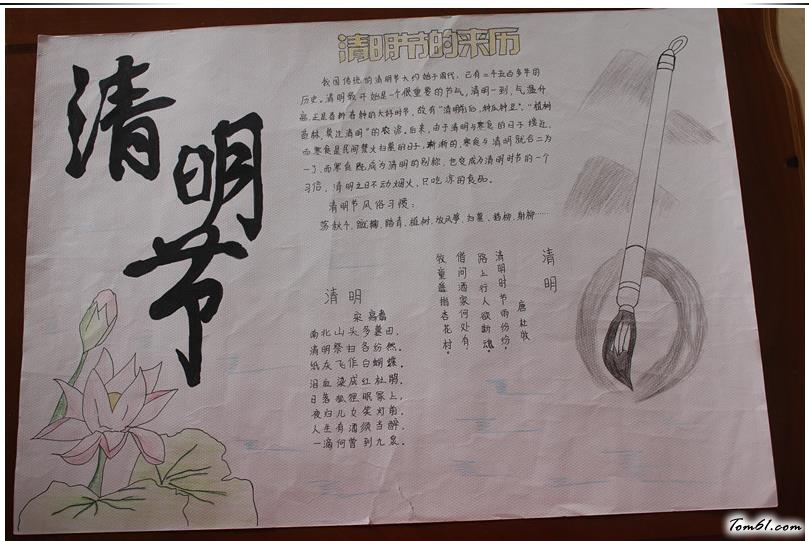 清明节
清明节的来历
我国传统的清明节大约始于周代，已有二千五百多年的
历史。清明最开始是一个很重要的节气，清明一到，气温升
高，正是春耕春种的大好时节，故有“清明前后，种瓜种豆”。“植树
造林，莫过清明”的农谚。后来，由于清明与寒食的日子接近，
而寒食是民间禁火扫墓的日子，渐渐的，寒食与清明就合二为
一了，而寒食既成为清明的别称，也变成为清明时节的一个
习俗，清明之日不动烟火，只吃凉的食品。
清明节风俗习惯：
荡秋千、蹴鞠、踏青、植树、放风筝、扫墓、插柳、射柳……
清明
唐 杜牧
清明时节雨纷纷，
路上行人欲断魂。
借问酒家何处有，
牧童遥指杏花村。
清明
宋 高翥
南北山头多墓田，
清明祭扫各纷然。
纸灰飞作白蝴蝶，
泪血染成红杜鹃。
日落狐狸眠冢上，
夜归儿女笑灯前。
人生有酒须当醉，
一滴何曾到九泉。
Tom61.com